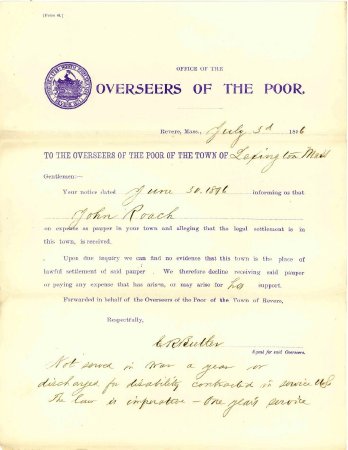 [Form 6.]
OFFICE OF THE
OVERSEERS OF THE POOR,
Revere, Mass., July 3d 1896
TO THE OVERSEERS OF THE POOR OF THE TOWN OF Lexington Mass
Gentlemen:—
Your notice dated June 30, 1896 informing us that
John Roach
on expense as pauper in your town and alleging that the legal settlement is in
this town, is received.
Upon due inquiry we can find no evidence that this town is the place of
lawful settlement of said pauper . We therefore decline receiving said pauper
or paying any expense that has arisen, or may arise for his support.
Forwarded in behalf of the Overseers of the Poor of the Town of Revere,
Respectfully,
Butler
Agent for said Overseers.
Not served in War a year or
discharged for disability contracted in service
The law is imperative - One year's service